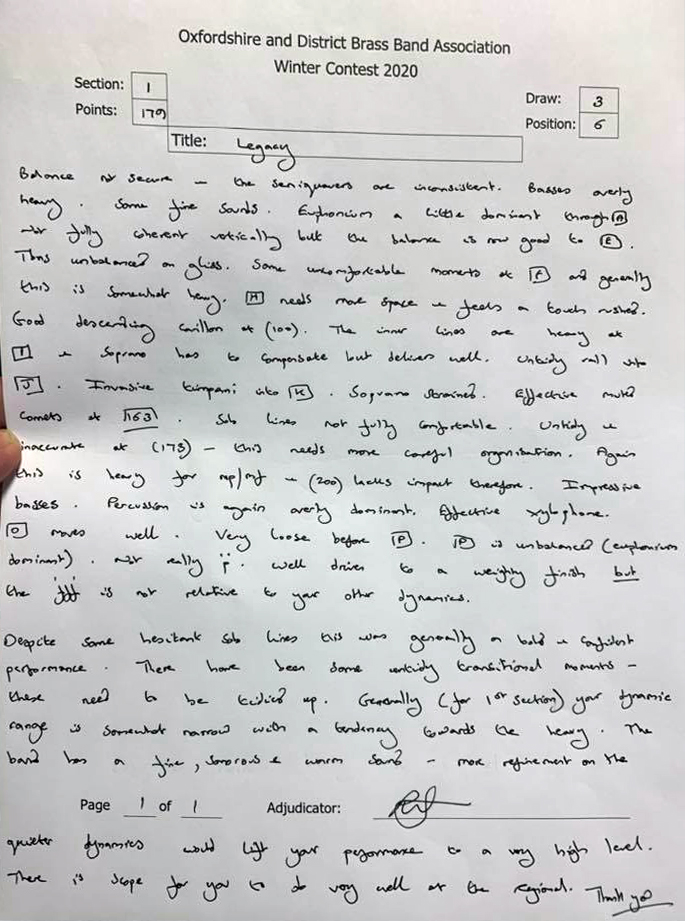 Oxfordshire and District Brass Band Association
Winter Contest 2020
Section: 1
Points: 179
Draw: 3
Position: 6
Title: Legacy
Balance not secure – the semiquavers are inconsistent. Basses overly
heavy. Some fine sounds. Euphonium a little dominant through A
not fully coherent vertically but the balance is now good to E.
Tbns unbalanced on gliss. Some uncomfortable moments at F and generally
this is somewhat heavy. H needs more space – feels a touch rushed.
Good descending carillon at (100). The inner lines are heavy at
I & Soprano has to compensate but delivers well. Untidy rall into
J. Invasive timpani into K. Soprano strained. Effective muted
cornets at 163. Solo lines not fully comfortable. Untidy &
inaccurate at (173) – this needs more careful organisation. Again
this is heavy for mp/mf – (200) lacks impact therefore. Impressive
basses. Percussion is again overly dominant. Effective xylophone.
O moves well. Very loose before P. P is unbalanced (euphonium
dominant). Not really p. Well driven to a weighty finish but
the fff is not relative to your other dynamics.
Despite some hesitant solo lines this was generally a bold & confident
performance. There have been some untidy transitional moments –
these need to be tidied up. Generally (for 1st section) your dynamic
range is somewhat narrow with a tendency towards the heavy. The
band has a fine, sonorous & warm sound – more refinement on the
Page 1 of 1 Adjudicator:
quieter dynamics would lift your performance to a very high level.
There is scope for you to do very well at the regional. Thank you